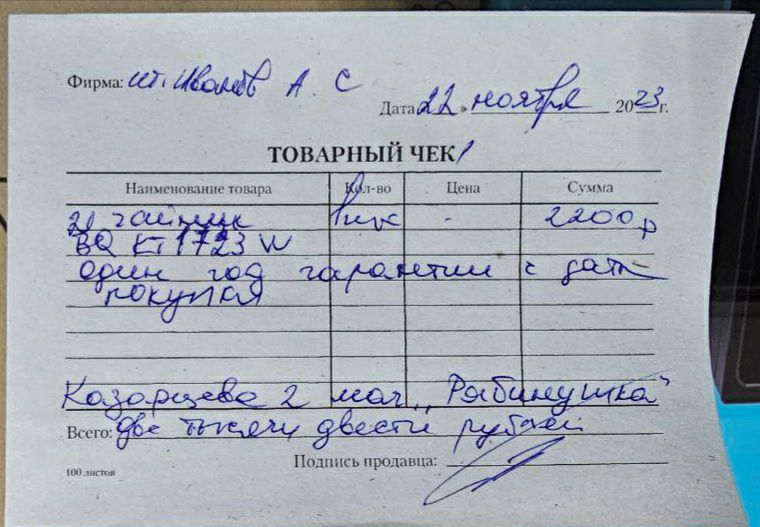 Фирма: ип. Иванов А. С
Дата 22 » ноября 2023 г.
ТОВАРНЫЙ ЧЕК
Наименование товара Кол-во Цена Сумма
чайник 1шт - 2200р
BQ KT1723W
один год гарантии с даты
покупкя
Казарцева 2 маг „Рябинушка"
Всего: две тысячи двести рублей
Подпись продавца:
100 листов